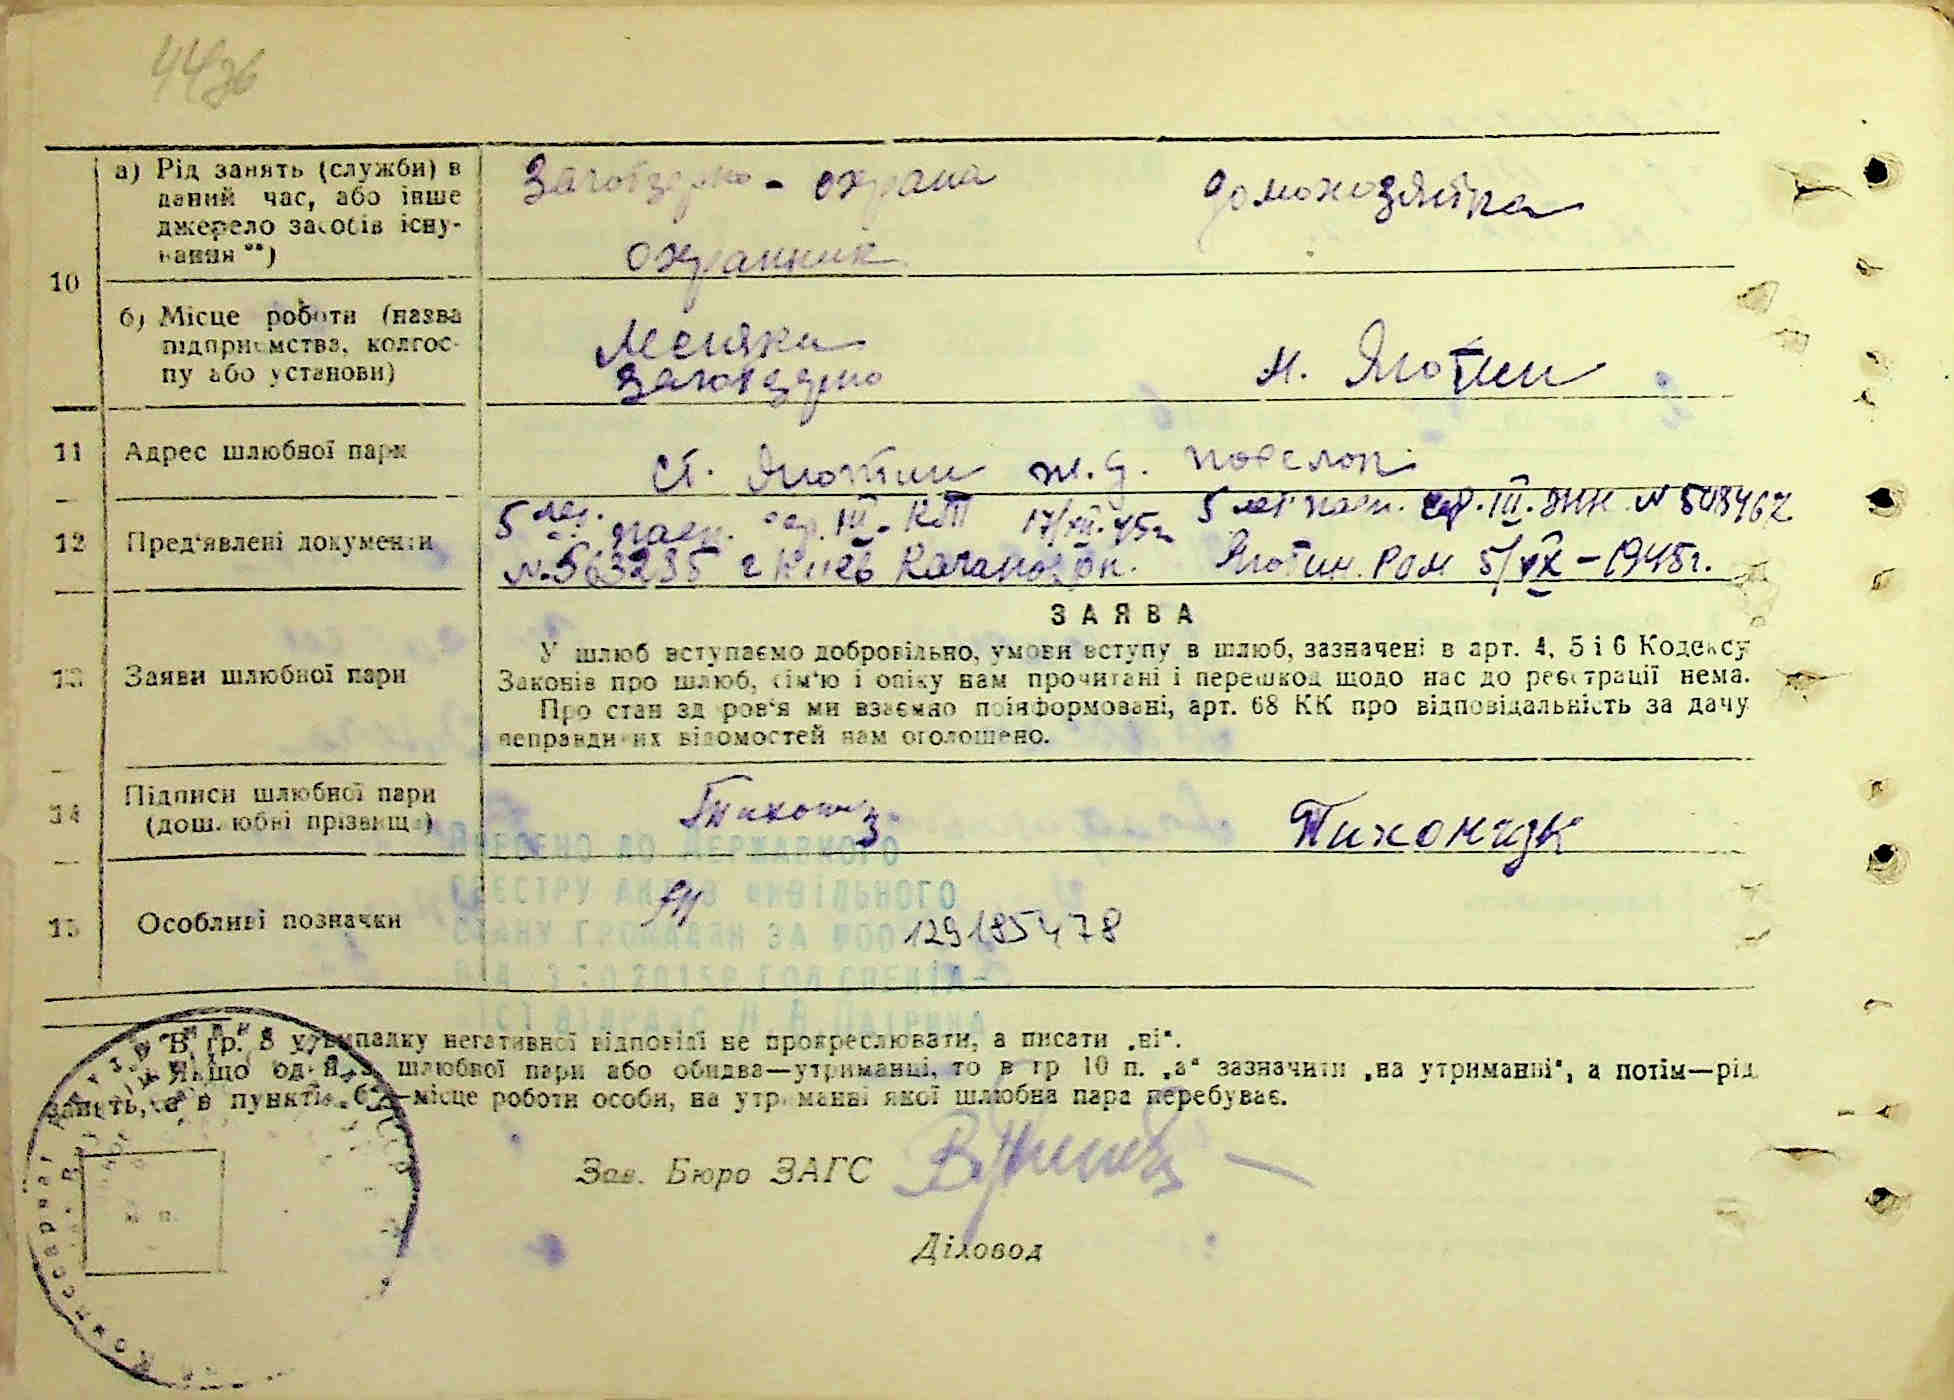 10
а) Рід занять (служби) в
даний час, або інше
джерело засобів існу-
вання **)
Заготзерно - охрана
охранник
домохозяйка
б) Місце роботи (назва
підприємства, колгос-
пу або установи)
Заготзерно
м. Яготин
11
Адрес шлюбної пари
ст. Яготин ж.д. поселок
12
Пред'явлені документи
5 лет. пасп. сер. III - КТ 17/XII-45г
№ 563285 г Киев
5 лет пасп. сер. III. ЖК № 508462
Яготин. РОМ 5/IX - 1945г.
13
Заяви шлюбної пари
ЗАЯВА
У шлюб вступаємо добровільно, умови вступу в шлюб, зазначені в арт. 4, 5 і 6 Кодексу
Законів про шлюб, сім'ю і опіку нам прочитані і перешкод щодо нас до реєстрації нема.
Про стан здоров'я ми взаємно поінформовані, арт. 68 КК про відповідальність за дачу
неправдивих відомостей нам оголошено.
14
Підписи шлюбної пари
(дошлюбні прізвища)
Тихончук
15
Особливі позначки
129185478
ВНЕСЕНО ДО ДЕРЖАВНОГО
РЕЄСТРУ АКТІВ ЦИВІЛЬНОГО
СТАНУ ГРОМАДЯН ЗА №00
В гр. 8 у випадку негативної відповіді не прокреслювати, а писати „ні“.
Якщо од шлюбної пари або обидва—утриманці, то в гр 10 п. „а“ зазначити „на утриманні“, а потім—рід
занять, а в пункті „б“—місце роботи особи, на утриманні якої шлюбна пара перебуває.
Зав. Бюро ЗАГС
Діловод
м. п.